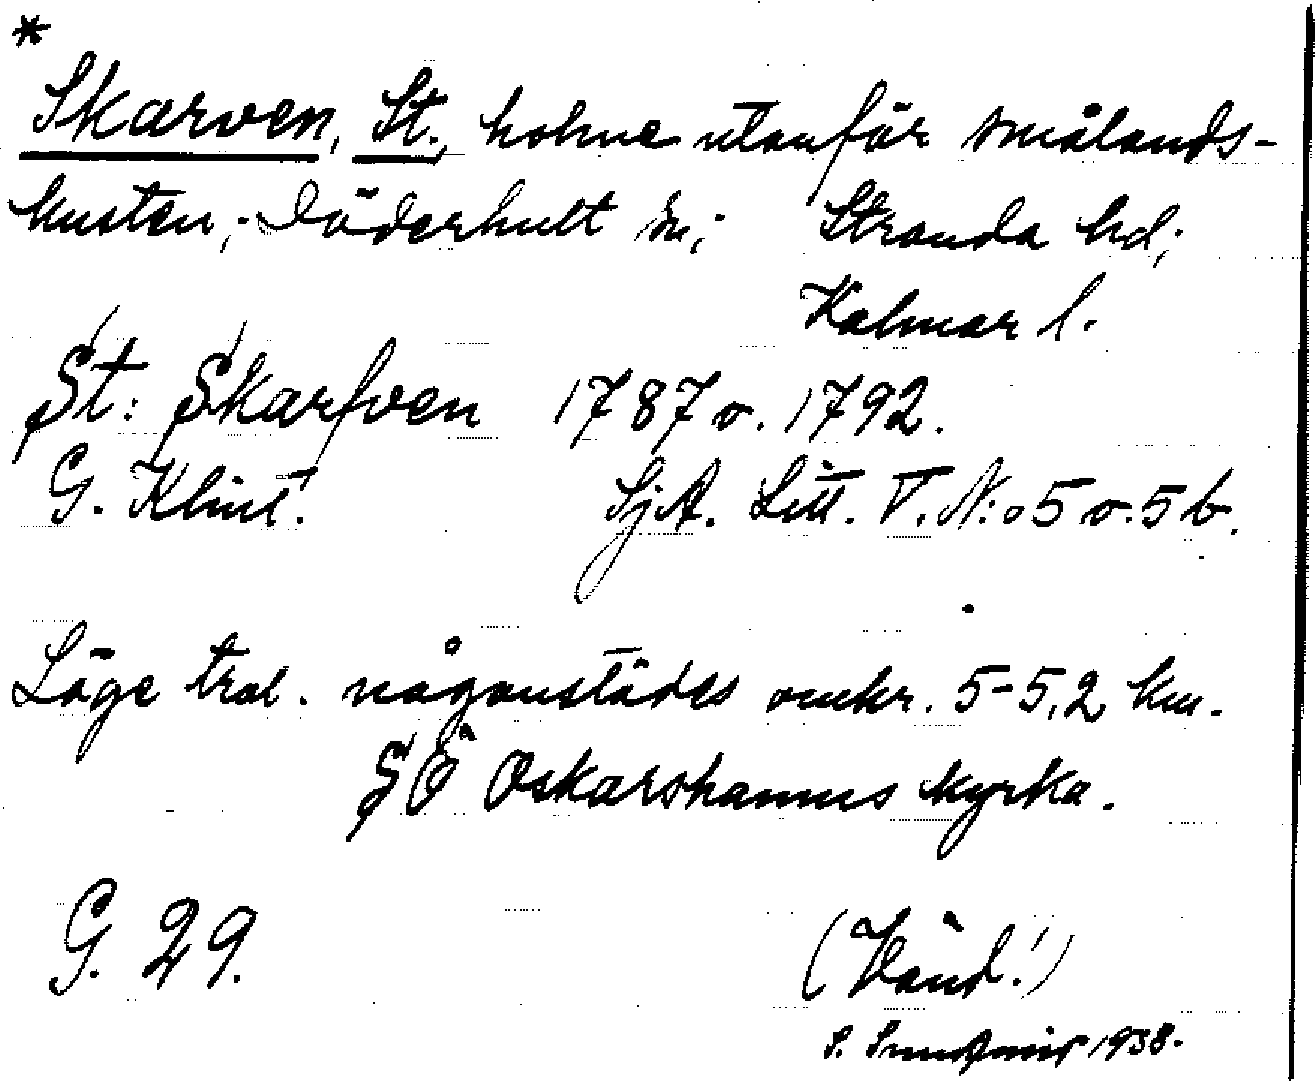 *
Skarven, St., holme utanför smålands-
kusten; Döderhult sn; Stranda hd;
Kalmar l.
St: Skarfven 1787 o. 1792.
G. Klint. SjA. Litt. V. N:o 5 o. 5 b.
Läge trol. någonstädes omkr. 5-5,2 km.
SÖ Oskarshamns kyrka.
G. 29.
(Vänd!)
S. 1938.